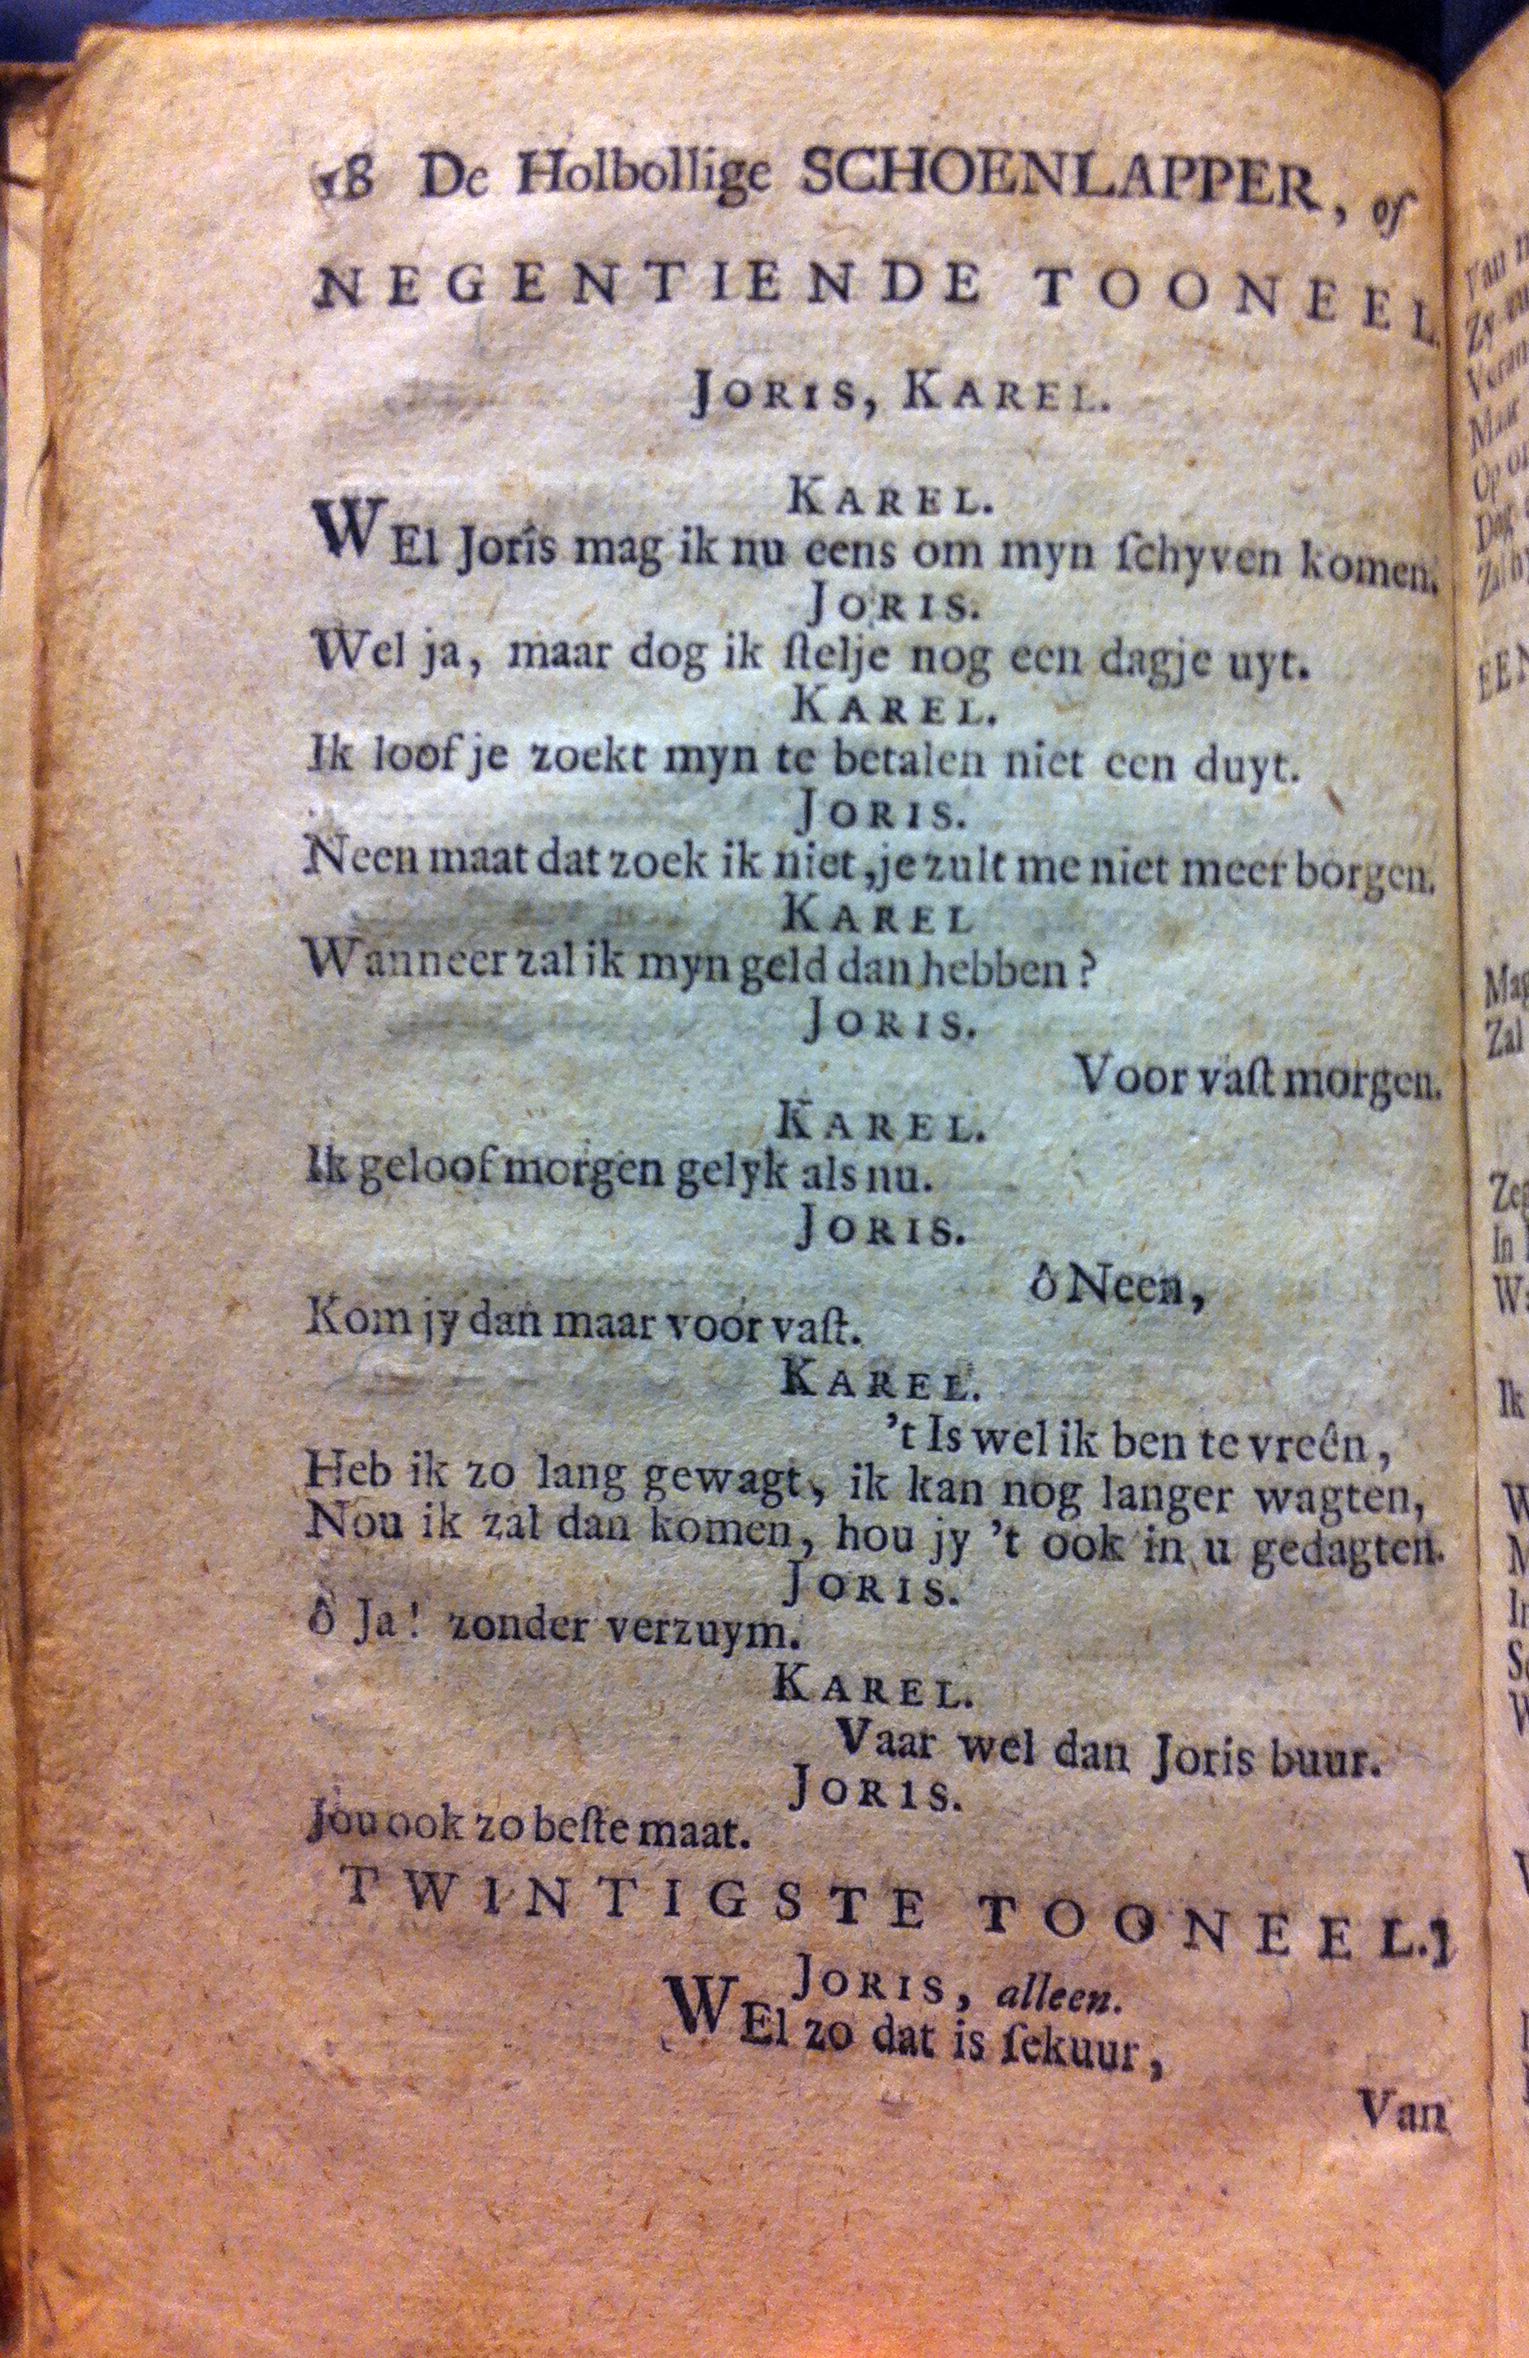 18 De Holbollige SCHOENLAPPER, of
NEGENTIENDE TOONEEL.
JORIS, KAREL.
KAREL.
WEl Joris mag ik nu eens om myn ſchyven komen.
JORIS.
Wel ja, maar dog ik ſtelje nog een dagje uyt.
KAREL.
Ik loof je zoekt myn te betalen niet een duyt.
JORIS.
Neen maat dat zoek ik niet, je zult me niet meer borgen.
KAREL
Wanneer zal ik myn geld dan hebben?
JORIS.
Voor vaſt morgen.
KAREL.
Ik geloof morgen gelyk als nu.
JORIS.
ô Neen,
Kom jy dan maar voor vaſt.
KAREL.
't Is wel ik ben te vreên,
Heb ik zo lang gewagt, ik kan nog langer wagten,
Nou ik zal dan komen, hou jy 't ook in u gedagten.
JORIS.
ô Ja! zonder verzuym.
KAREL.
Vaar wel dan Joris buur.
JORIS.
Jou ook zo beſte maat.
TWINTIGSTE TOONEEL.
JORIS, alleen.
WEl zo dat is ſekuur,
Van